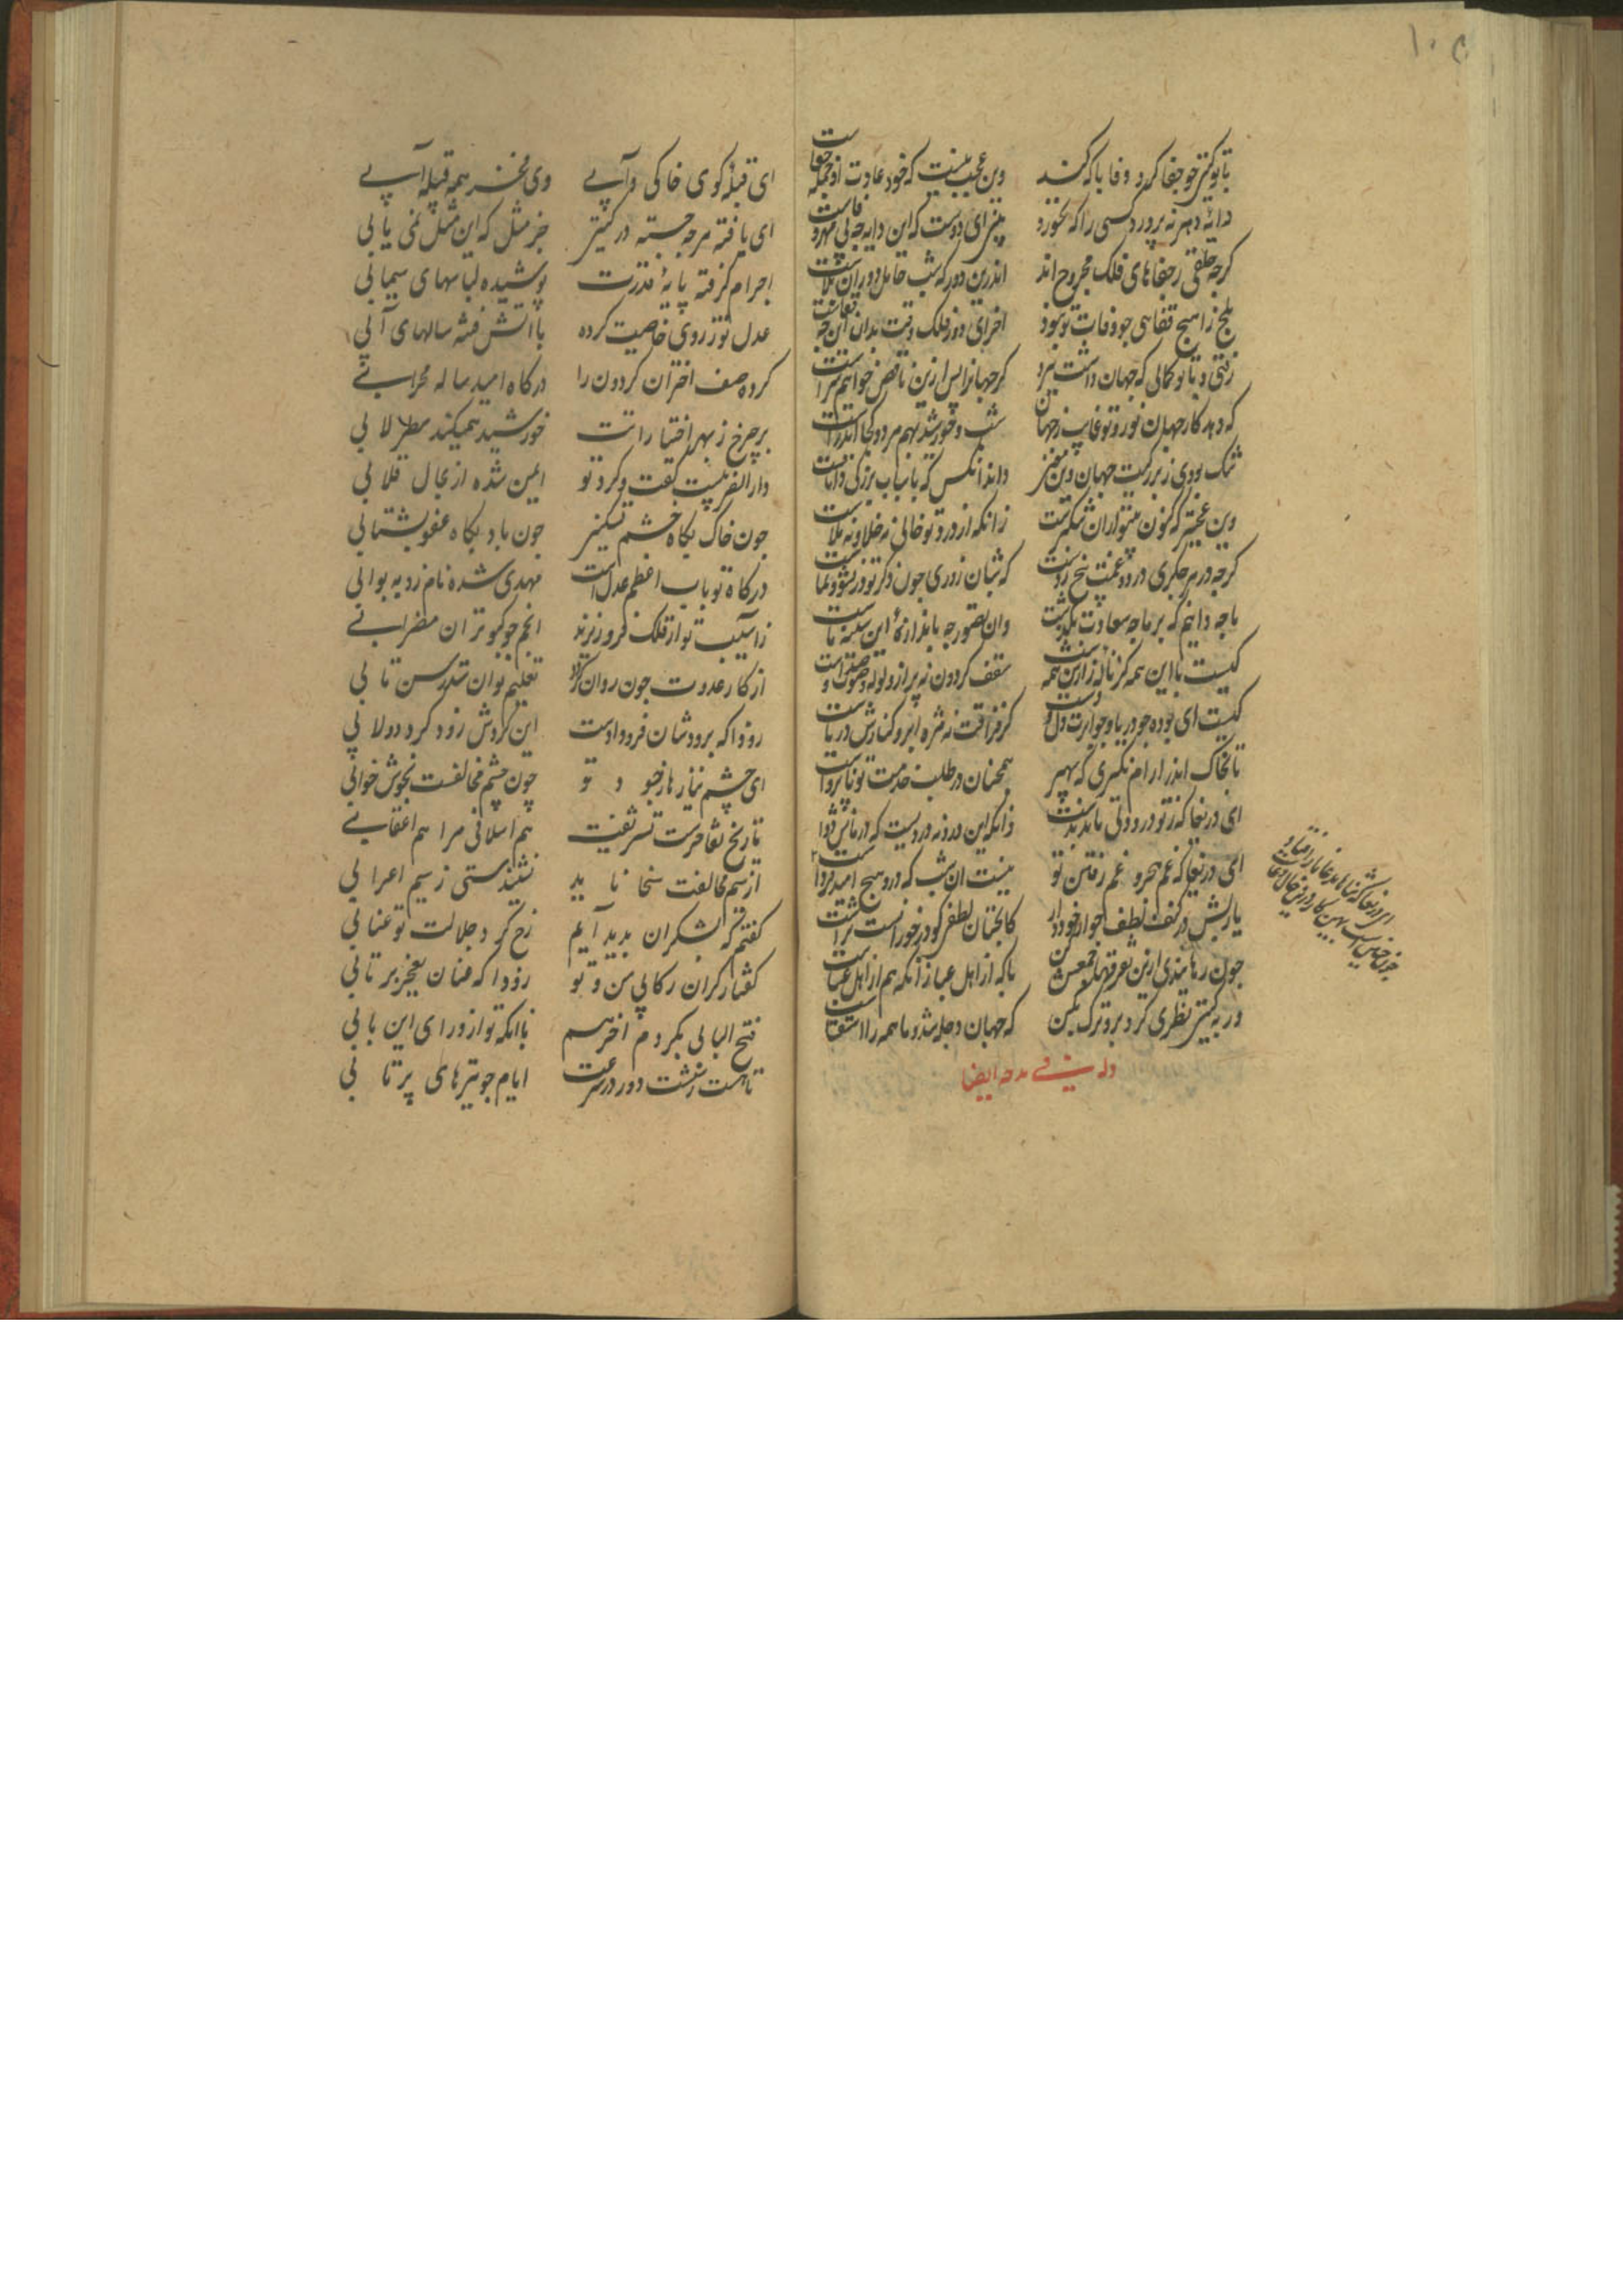 ۱۰۵
با تو گیتی چو جفا کرد وفا با که کند وین عجب نیست که خود عادت او جمله جفاست
دایهٔ دهر نپرورد کسی را که نخورد بینی ای دوست که این دایه چه بی مهر و وفاست
کرچه خلقی ز جفاهای فلک مجروح اند اندرین دور که شب حامل دوران بلاست
هیچ زا هیچ قفایی چو وفات تو نبود آخر ای دور فلک وقت بدان این چه قفاست
رفتی و با تو کمالی که جهان داشت ببرد کر جهان را پس ازین ناقص خوانیم سزاست
که دهد کار جهان نور و تو غایب ز جهان شب و خورشید بهم هر دو کجا آید راست
تنگ بودی ز بزرگیت جهان وین معنی داند انکس که باسباب بزرگی داناست
وین عجبتر که کنون بیتو ازان تنگترست زانکه از درد تو خالی نه خلا و نه ملاست
کرچه در هر جگری درد و غمت بیخ زدست که شبان روزی چون ذکر تو در نشو و نماست
ما چه دانیم که بر ما چه سعادت بگذشت وان تصور چه باندازهٔ این سینهٔ ماست
کیست با این همه کز ناله زارش همه شب سقف کردون نه پر از ولوله و صوت و صداست
کیست ای بوده چو دریا و چو ابرت دل و دست کز فراقت نه مژه ابر و کنارش دریاست
تا بخاک اندر ارام نکیری که سپهر همچنان در طلب خدمت تو ناپرواست
ای دریغا که ز تو درد دلی ماند بدست وانکه این درد نه دردیست که درمانش دواست
ای دریغا که غم هجر و غم رفتن تو نیست ان شب که درو هیچ امید فرداست
یاربش در کنف لطف و جوار خود دار کانچنان لطف کو در خور آنست تراست
چون رهانیدی ازین تفرقها جمعش کن با که از اهل عبا زانکه هم از اهل عباست
ور به گیتی نظری کرد برو ترک مکن که جهان دجله شد و ما همه را استسقاست
وله فی مدحه ایضا
ای قبلهٔ کوی خاکی و آبی وی فخر همه قبیلهٔ آبی
ای یافته هرچه جسته در گیتی جز مثل که این مثل نمی یابی
اجرام گرفته پایهٔ قدرت پوشیده لباسهای سیمابی
عدل تو ز روی خاصیت کرده با آتش فتنه سالهای آبی
کرده صف اختران کردون را درگاه امید ساله محرابی
بر چرخ ز بهر اختیاراتت خورشید همیکند سطرلابی
دارالضربیست گفت و کرد تو ایمن شده از مجال قلابی
چون خاک بگاه خشم تسکینی چون باد بگاه عفو بشتابی
درگاه تو باب اعظم عدلست مهدی شده نام زد به بوابی
زآسیب تو از فلک فرو ریزند انجم چو کبوتران مضرابی
از کار عدوت چون روان گردد تعلیم توان شدن رسن تابی
زودا که برودشان فرو دادست این گردش زود گرد دولابی
ای چشم نیازها ز جود تو چون چشم مخالفت بخوش خوابی
تاریخ تفاخرست تشریفت هم اسلافی مرا هم اعقابی
از سم مخالفت سخا ناید نشنیدستی ز سیم اعرابی
گفتم که بشکر آن پدید آیم رخ کرد جلالت تو عنابی
گفتار گران رکابی من و تو زودا که عنان بعجز برتابی
فتح البابی بکردم آخر هم با انکه تو از ورای این بابی
تا هست زنشت دور در سرعت ایام چو تیرهای پرتابی